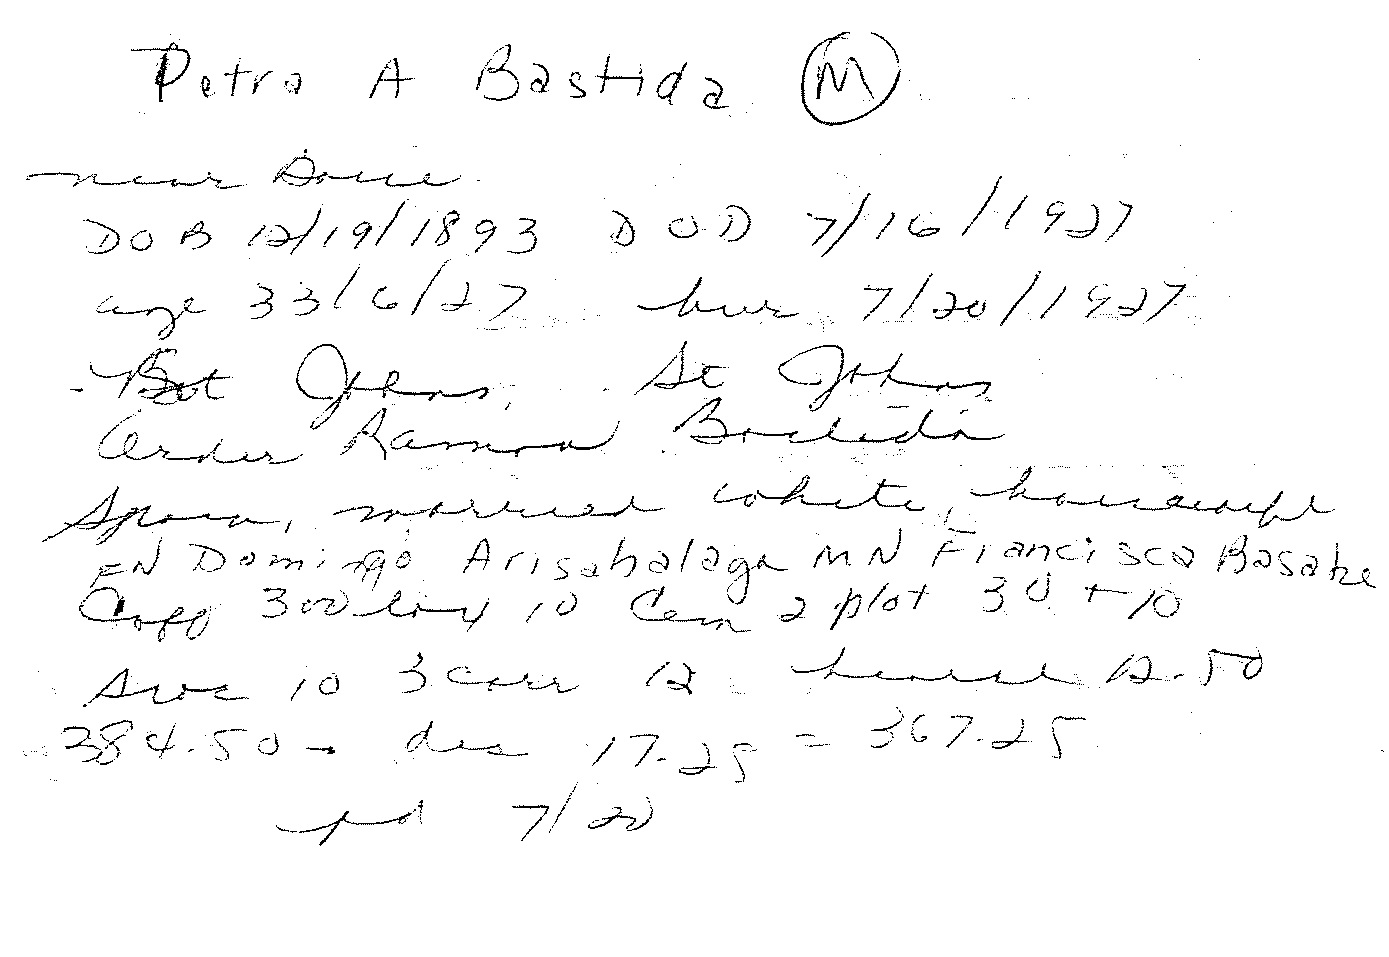 Petra A Bastida (M)
near Boise
DOB 12/19/1893 DOD 7/16/1927
age 33/6/27 bur 7/20/1927
St Johns, St Johns
order Ramon Bastida
Spain, married white, housewife
FN Domingo Arisabalaga MN Francisca Basabe
Coff 300 box 10 Cem 2 plot 30 + 10
Svc 10 3 carr 12 hearse 12.50
384.50 - dis 17.25 = 367.25
pd 7/20